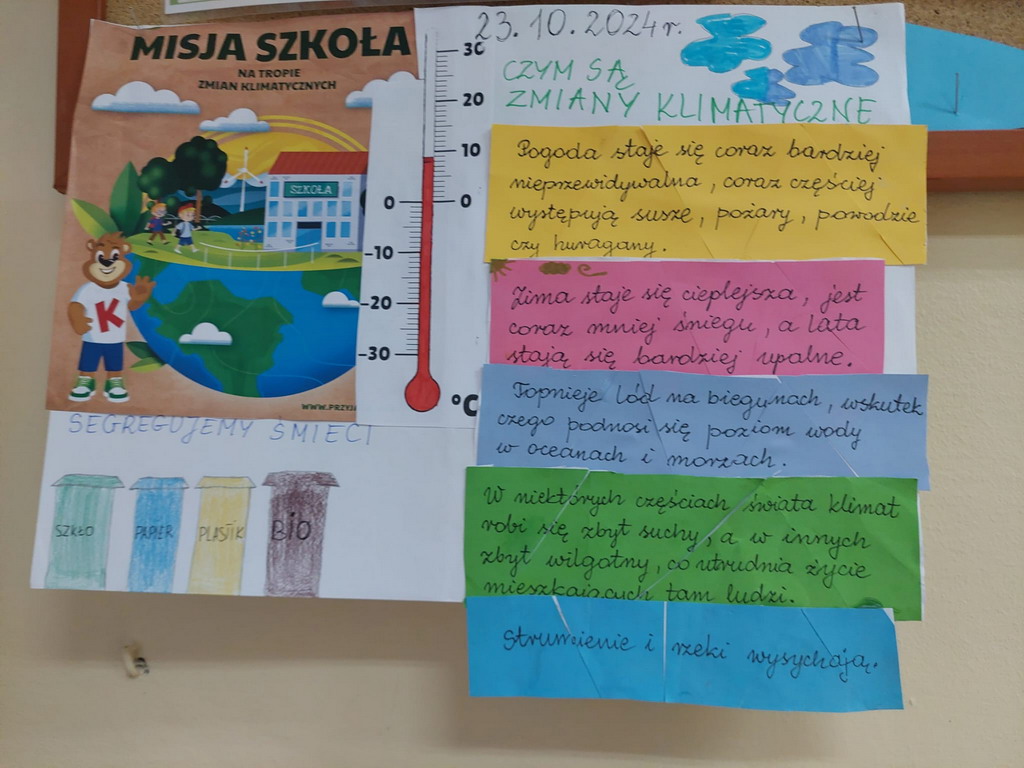 MISJA SZKOŁA
NA TROPIE
ZMIAN KLIMATYCZNYCH
SZKOŁA
K
30
20
10
0
0
-10
-20
-30
°C
SEGREGUJEMY ŚMIECI
SZKŁO
PAPIER
PLASTIK
BIO
23.10.2024r.
CZYM SĄ
ZMIANY KLIMATYCZNE
Pogoda staje się coraz bardziej
nieprzewidywalna, coraz częściej
występują susze, pożary, powodzie
czy huragany.
Zima staje się cieplejsza, jest
coraz mniej śniegu, a lata
stają się bardziej upalne.
Topnieje lód na biegunach, wskutek
czego podnosi się poziom wody
w oceanach i morzach.
W niektórych częściach świata klimat
robi się zbyt suchy, a w innych
zbyt wilgotny, co utrudnia życie
mieszkających tam ludzi.
Strumienie i rzeki wysychają.